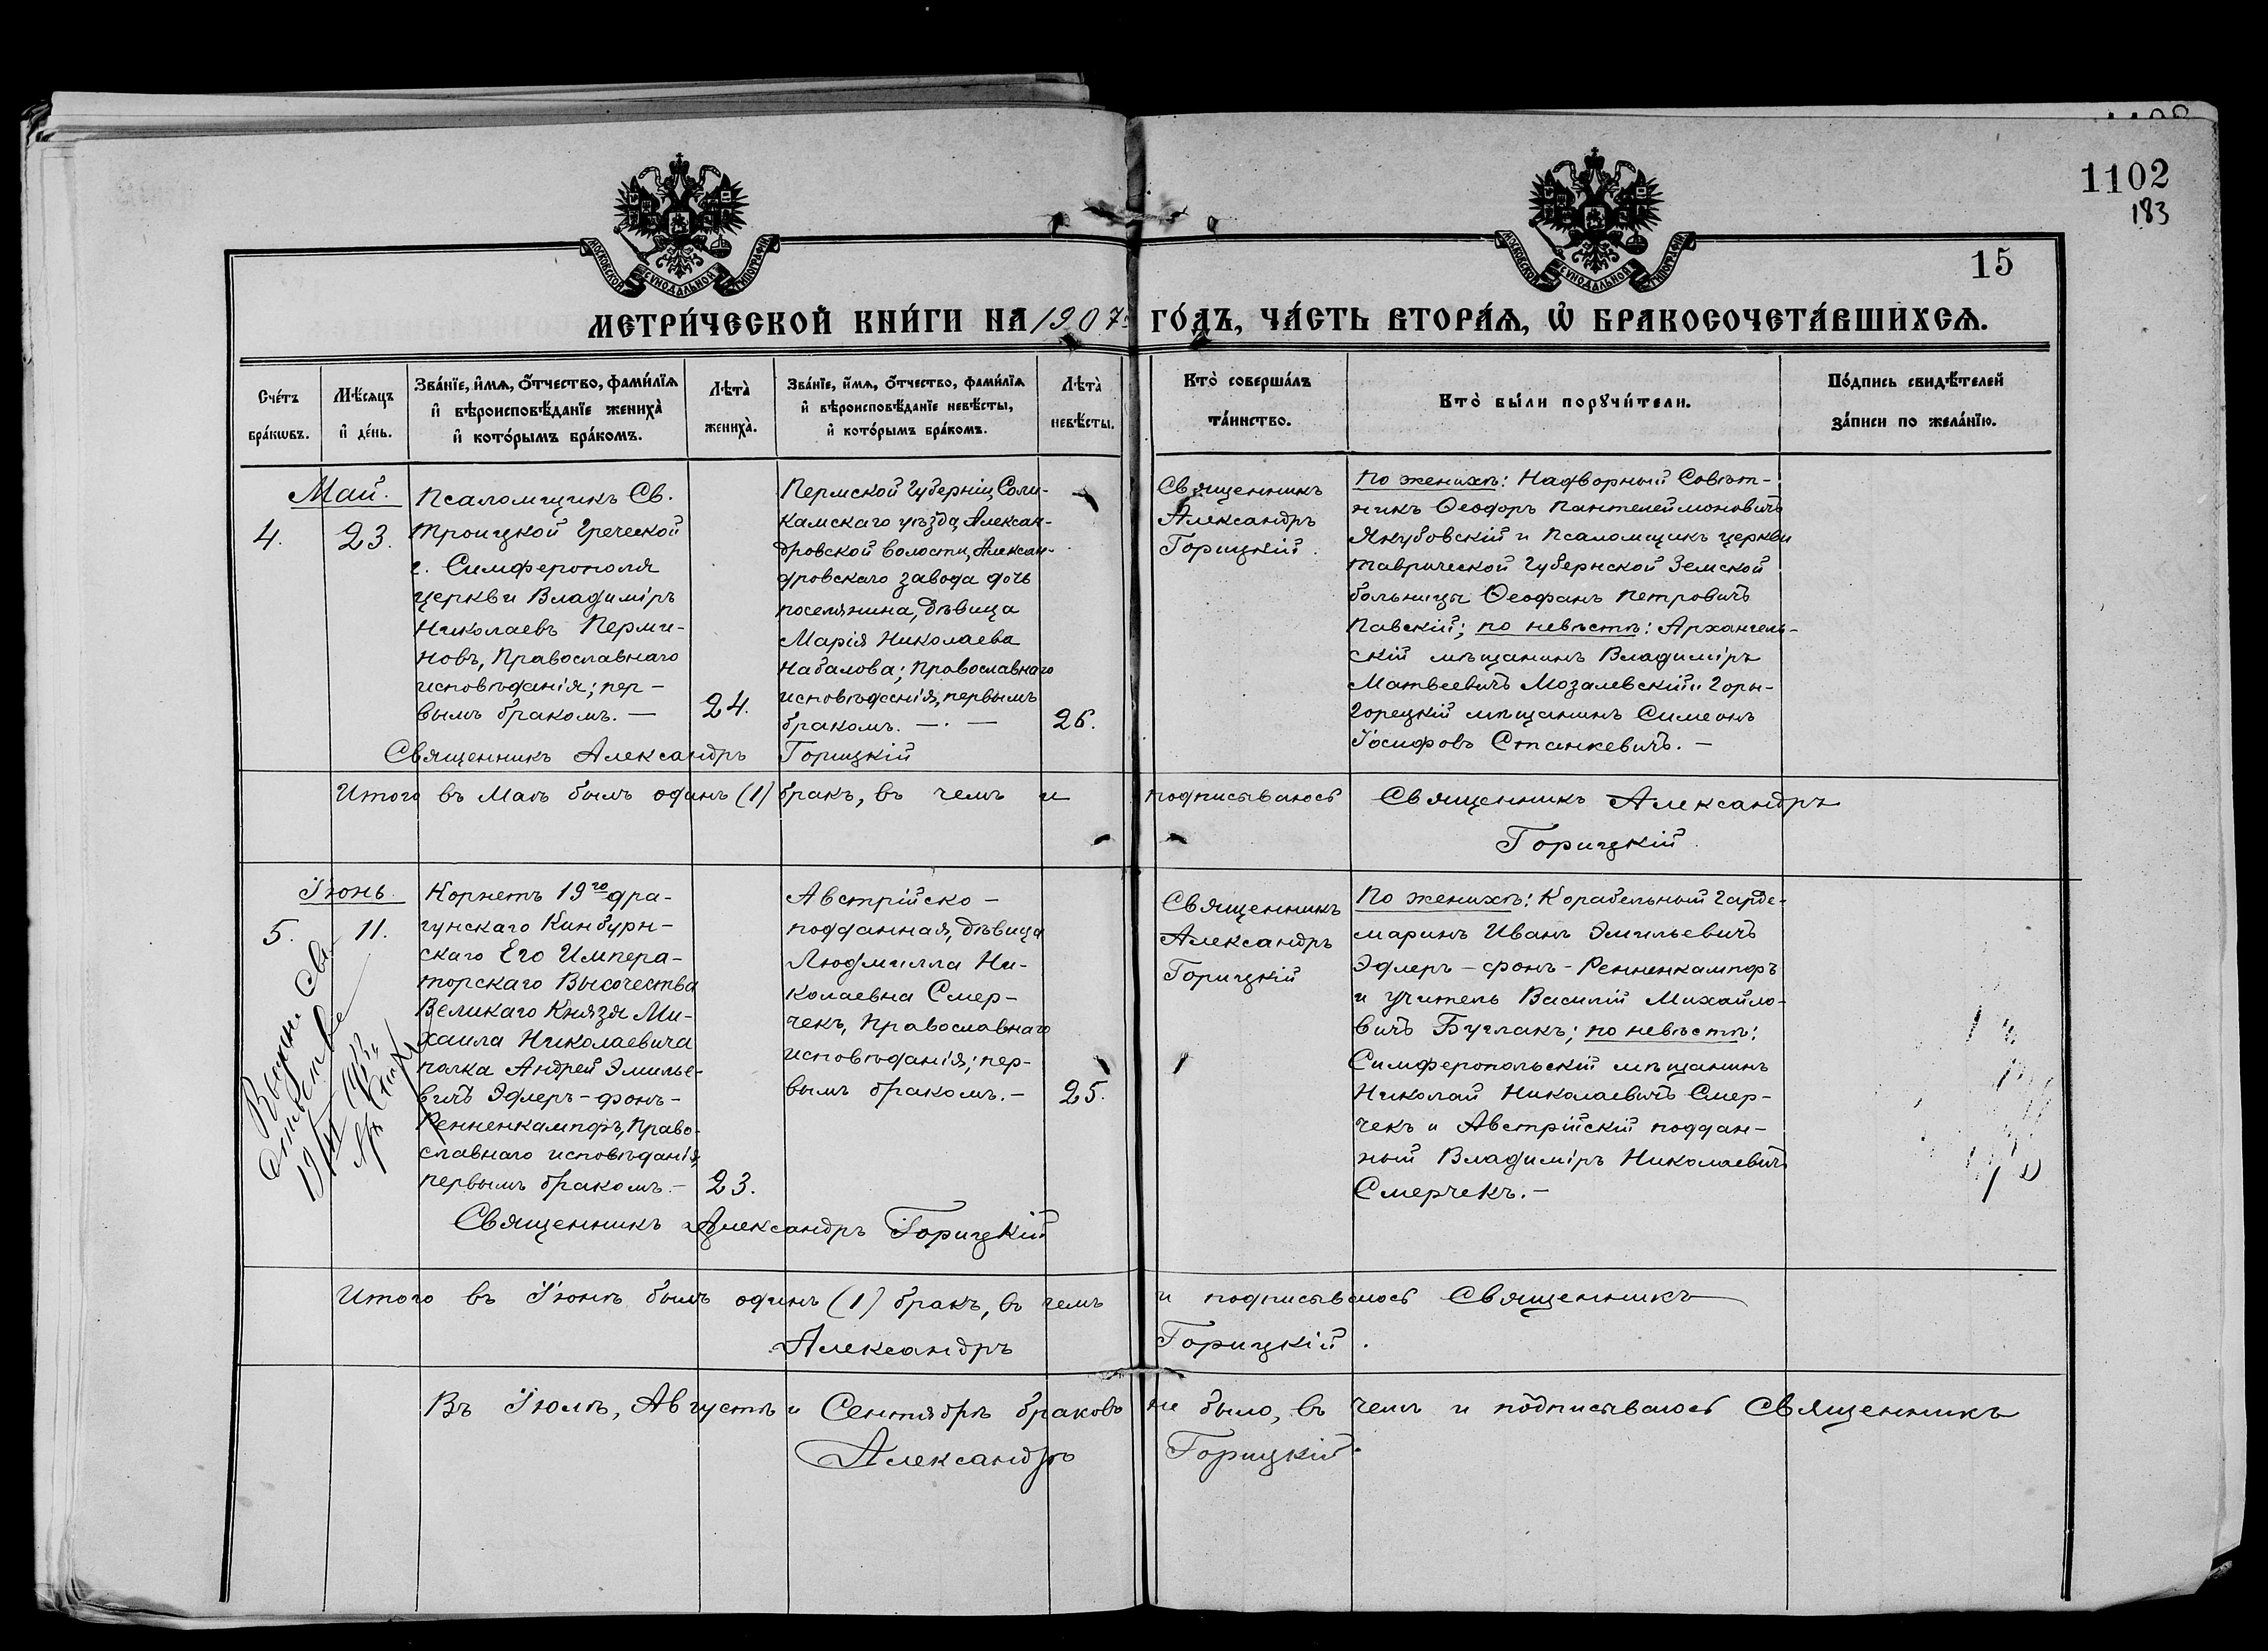 1102
183
15
МОСКОВСКОЙ СѴНОДАЛЬНОЙ ТИПОГРАФІИ
МОСКОВСКОЙ СѴНОДАЛЬНОЙ ТИПОГРАФІИ
МЕТРИ́ЧЕСКОЙ КНИ́ГИ НА 1907й ГО́ДЪ, ЧА́СТЬ ВТОРА́Ѧ, Ѡ҆ БРАКОСОЧЕТА́ВШИХСѦ.
Сче́тъ
бра́кѡвъ.
Мѣ́сѧцъ
и҆ де́нь.
Зва́нїе, и҆́мѧ, ѻ҆́тчество, фами́лїѧ
и҆ вѣроисповѣ́данїе жениха̀
и҆ кото́рымъ бра́комъ.
Лѣта̀
жениха̀.
Зва́нїе, и҆́мѧ, ѻ҆́тчество, фами́лїѧ
и҆ вѣроисповѣ́данїе невѣ́сты,
и҆ кото́рымъ бра́комъ.
Лѣта̀
невѣ́сты.
Кто̀ соверша́лъ
та́инство.
Кто̀ бы́ли порꙋчи́тели.
По́дпись свидѣ́телей
за́писи по жела́нїю.
Май.
4.
23.
Псаломщикъ Св.
Троицкой Греческой
г. Симферополя
церкви Владиміръ
Николаевъ Перми-
новъ, Православнаго
исповѣданія; пер-
вымъ бракомъ. —
24.
Пермской Губерніи, Соли-
камскаго уѣзда, Алексан-
дровской волости, Алексан-
дровскаго завода дочь
поселянина, дѣвица
Марія Николаева
Набалова; Православнаго
исповѣданія, первымъ
бракомъ. — . —
26.
Священникъ
Александръ
Горицкій.
По женихѣ: Надворный Совѣт-
никъ Ѳеодоръ Пантелеймоновичъ
Якубовскій и Псаломщикъ церкви
Таврической Губернской Земской
больницы Ѳеофанъ Петровичъ
Павскій; по невѣстѣ: Архангель-
скій мѣщанинъ Владиміръ
Матвеевичъ Мозалевскій и Горы-
Горецкій мѣщанинъ Симеонъ
Іосифовъ Станкевичъ. —
Священникъ Александръ Горицкій
Итого въ Маѣ былъ одинъ (1) бракъ, въ чемъ и подписываюсь Священникъ Александръ
Горицкій.
Іюнь.
5.
11.
Корнетъ 19го дра-
гунскаго Кинбурн-
скаго Его Импера-
торскаго Высочества
Великаго Князя Ми-
хаила Николаевича
полка Андрей Эмилье-
вичъ Эдлеръ-фонъ-
Ренненкампфъ, Право-
славнаго исповѣданія,
первымъ бракомъ. —
23.
Австрійско-
подданная, дѣвица
Людмилла Ни-
колаевна Смер-
чекъ, Православнаго
исповѣданія; пер-
вымъ бракомъ. —
25.
Священникъ
Александръ
Горицкій
По женихѣ: Корабельный Гарде-
маринъ Иванъ Эмильевичъ
Эдлеръ-фонъ-Ренненкампфъ
и учитель Василій Михайло-
вичъ Буглакъ; по невѣстѣ:
Симферопольскій мѣщанинъ
Николай Николаевичъ Смер-
чекъ и Австрійскій поддан-
ный Владиміръ Николаевичъ
Смерчекъ. —
Священникъ Александръ Горицкій
Итого въ Іюнѣ былъ одинъ (1) бракъ, въ чемъ и подписываюсь Священникъ
Александръ Горицкій.
Въ Іюлѣ, Августѣ и Сентябрѣ браковъ не было, въ чемъ и подписываюсь Священникъ
Александръ Горицкій.